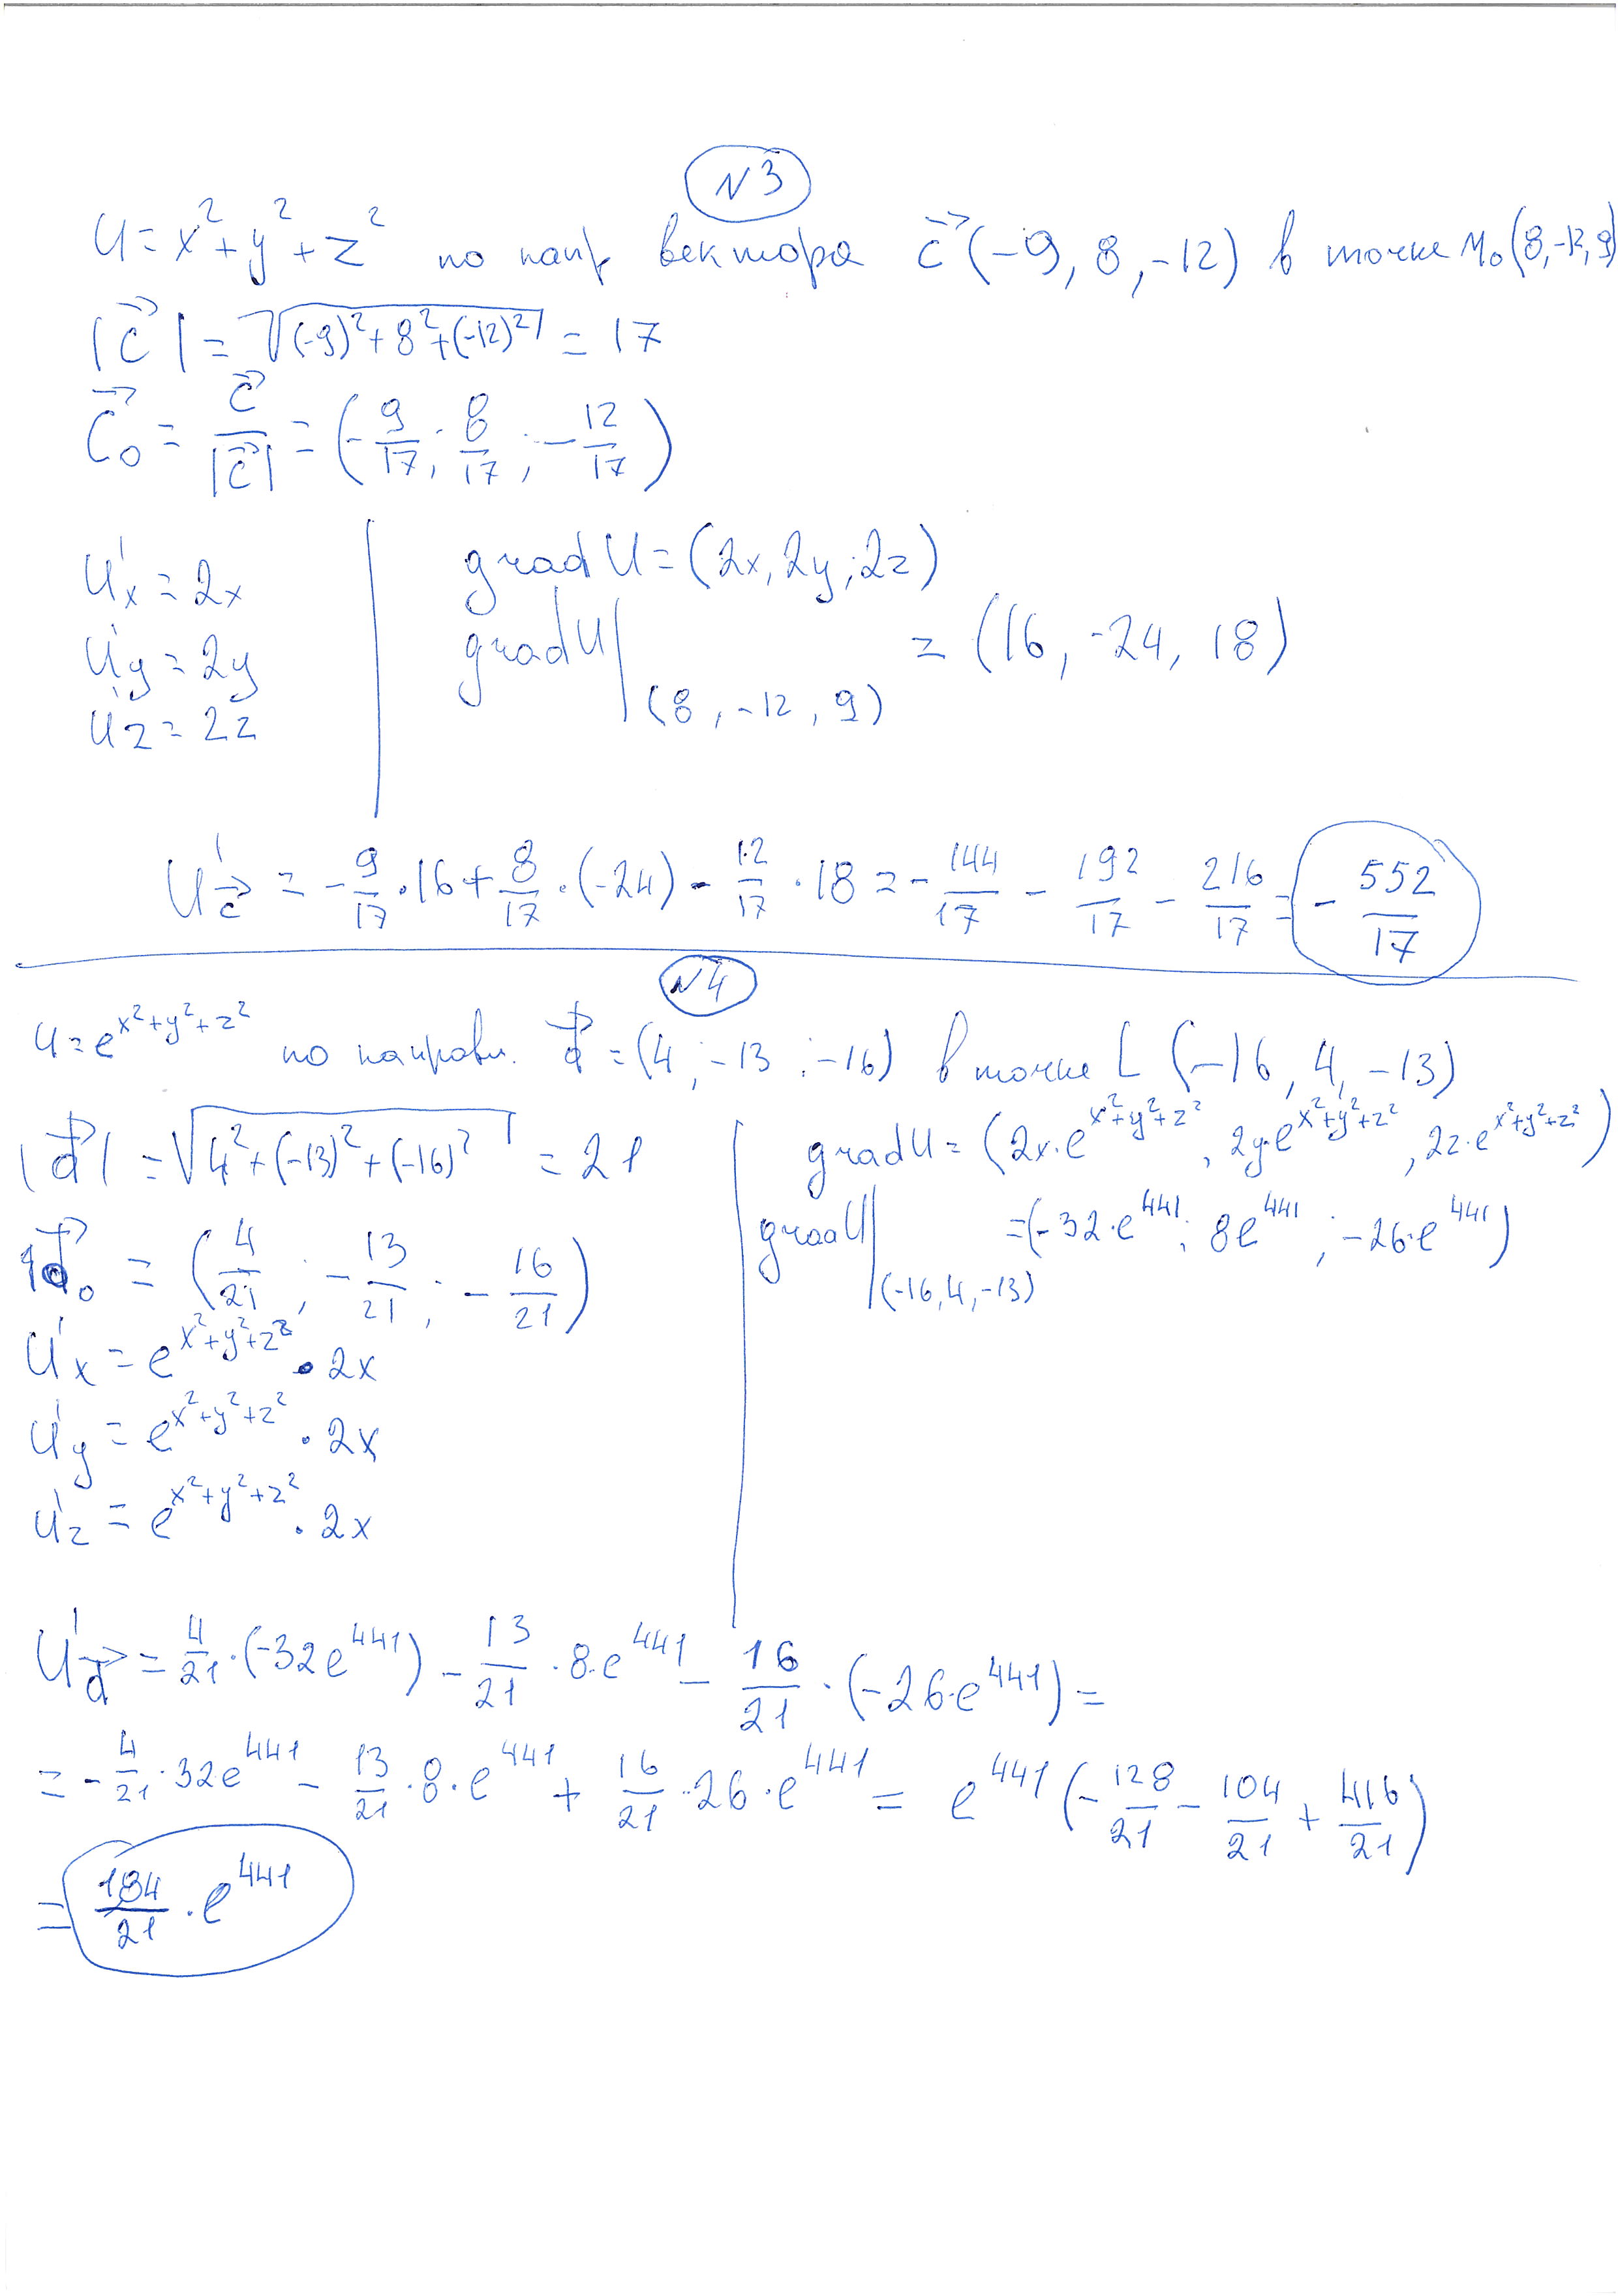 N3
U = x² + y² + z² по напр вектора c⃗ (-9, 8, -12) в точке M₀ (8, -12, 9)
|c⃗| = √((-9)² + 8² + (-12)²) = 17
c⃗₀ = c⃗/|c⃗| = (-9/17; 8/17; -12/17)
U'x = 2x
U'y = 2y
U'z = 2z
grad U = (2x, 2y; 2z)
grad U|(8, -12, 9) = (16, -24, 18)
U'c⃗ = -9/17 · 16 + 8/17 · (-24) - 12/17 · 18 = -144/17 - 192/17 - 216/17 = -552/17
N4
U = e^(x²+y²+z²) по направл. d⃗ = (4; -13; -16) в точке L (-16, 4, -13)
|d⃗| = √(4² + (-13)² + (-16)²) = 21
d⃗₀ = (4/21; -13/21; -16/21)
U'x = e^(x²+y²+z²) · 2x
U'y = e^(x²+y²+z²) · 2x
U'z = e^(x²+y²+z²) · 2x
grad U = (2x·e^(x²+y²+z²), 2y·e^(x²+y²+z²), 2z·e^(x²+y²+z²))
grad U|(-16, 4, -13) = (-32·e^441; 8e^441; -26·e^441)
U'd⃗ = 4/21 · (-32e^441) - 13/21 · 8·e^441 - 16/21 · (-26·e^441) =
= -4/21 · 32e^441 - 13/21 · 8 · e^441 + 16/21 · 26 · e^441 = e^441 (-128/21 - 104/21 + 416/21)
= 184/21 · e^441